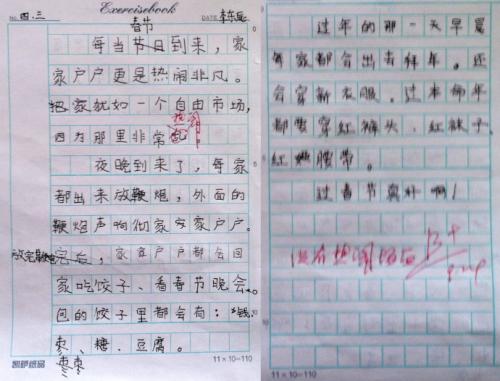 Exercisebook
No. 四.三
DATE
春节
每当节日到来，家
家户户更是热闹非凡。
把家就如一个自由市场，
因为那里非常
热闹
夜晚到来了，每家
都出来放鞭炮，外面的
鞭炮声响彻家家户户。
放完鞭炮
完后，家家户户都会回
家吃饺子、看春节晚会。
包的饺子里都会有：钱、
枣、糖、豆腐。
枣枣
凯萨纸品
11×10=110
过年的那一天早晨
每家都会出去拜年。还
会穿新衣服。过本命年
都要穿红裤头、红袜子
红腰带。
过春节真朴啊！
没有热闹场面
B+
11×10=110